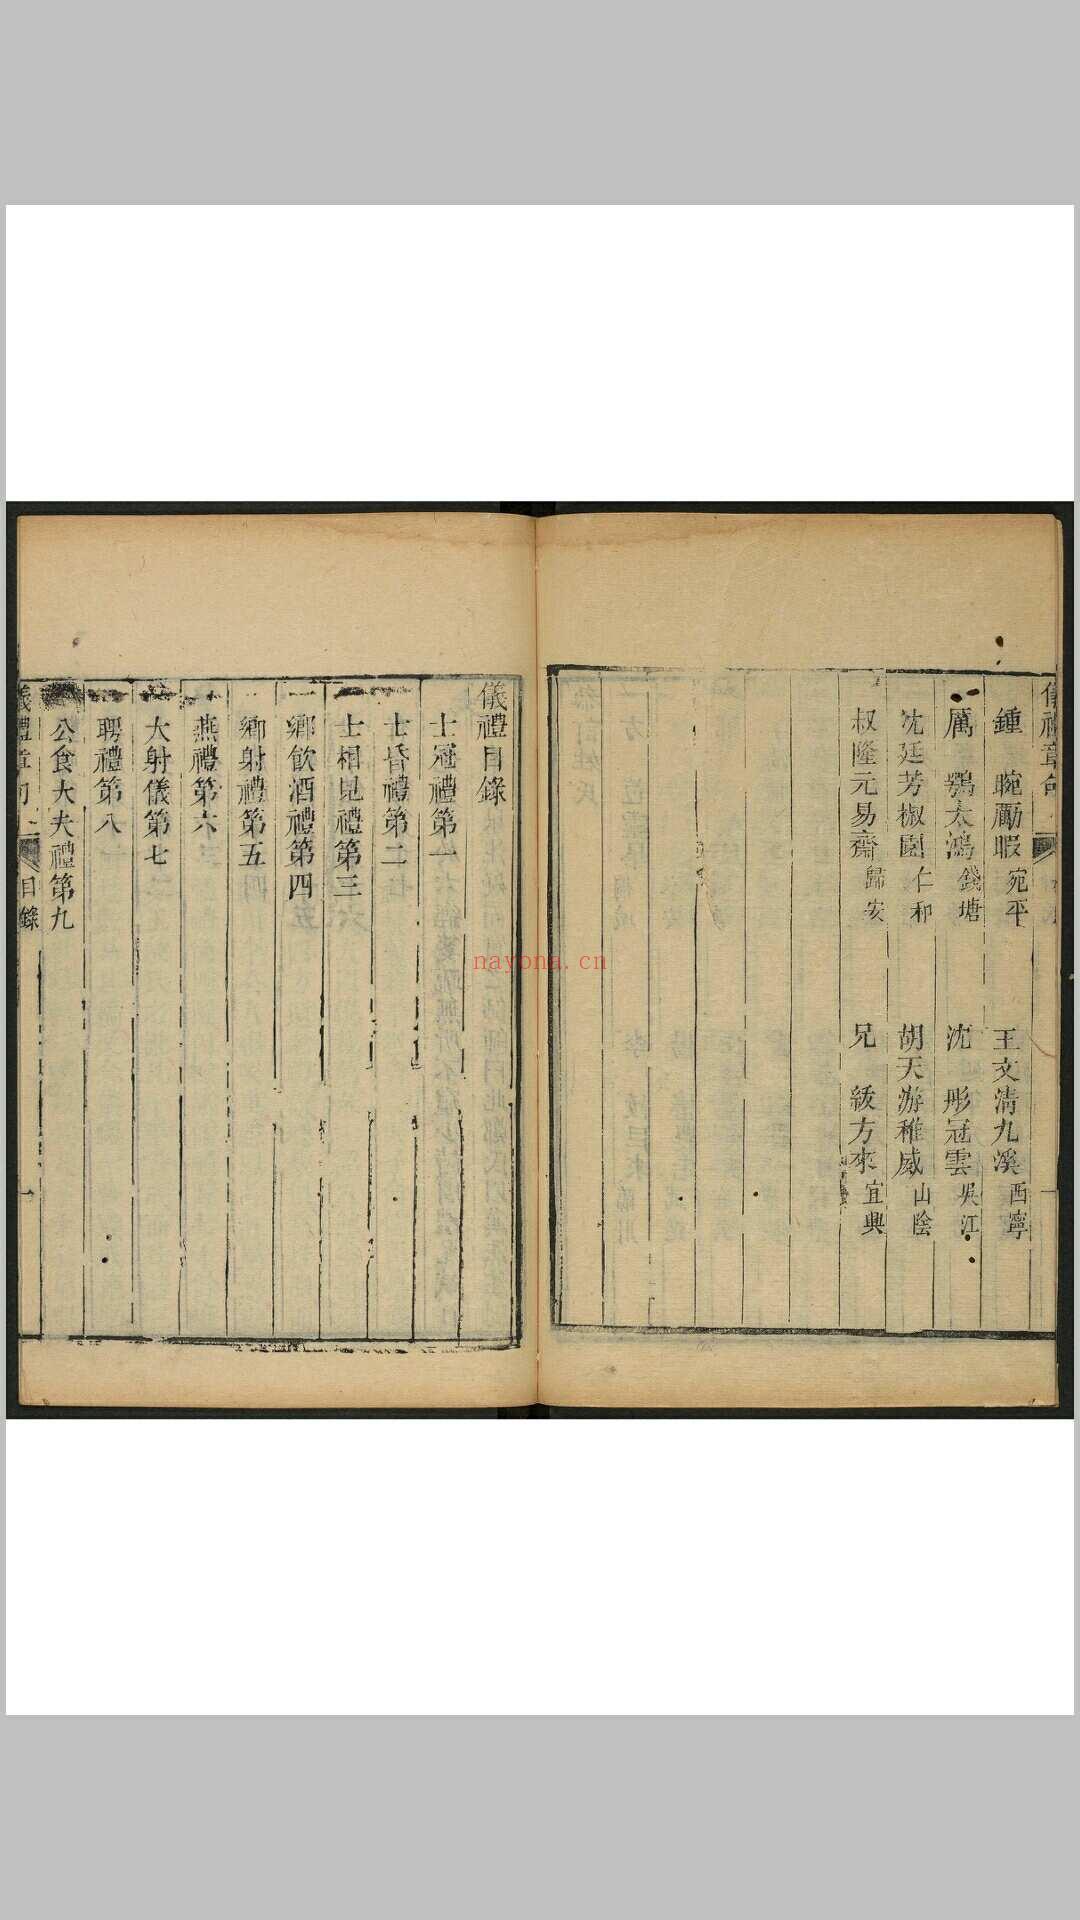 儀禮章句
鍾　畹勵暇宛平　王文清九溪西寧
厲　鶚太鴻錢塘　沈　彤冠雲吳江
沈廷芳椒園仁和　胡天游稚威山陰
叔隆元易齋歸安　兄　紱方來宜興
儀禮目錄
士冠禮第一
士昏禮第二
士相見禮第三
鄉飲酒禮第四
鄉射禮第五
燕禮第六
大射儀第七
聘禮第八
公食大夫禮第九
儀禮章句　目錄　一
nayona.cn